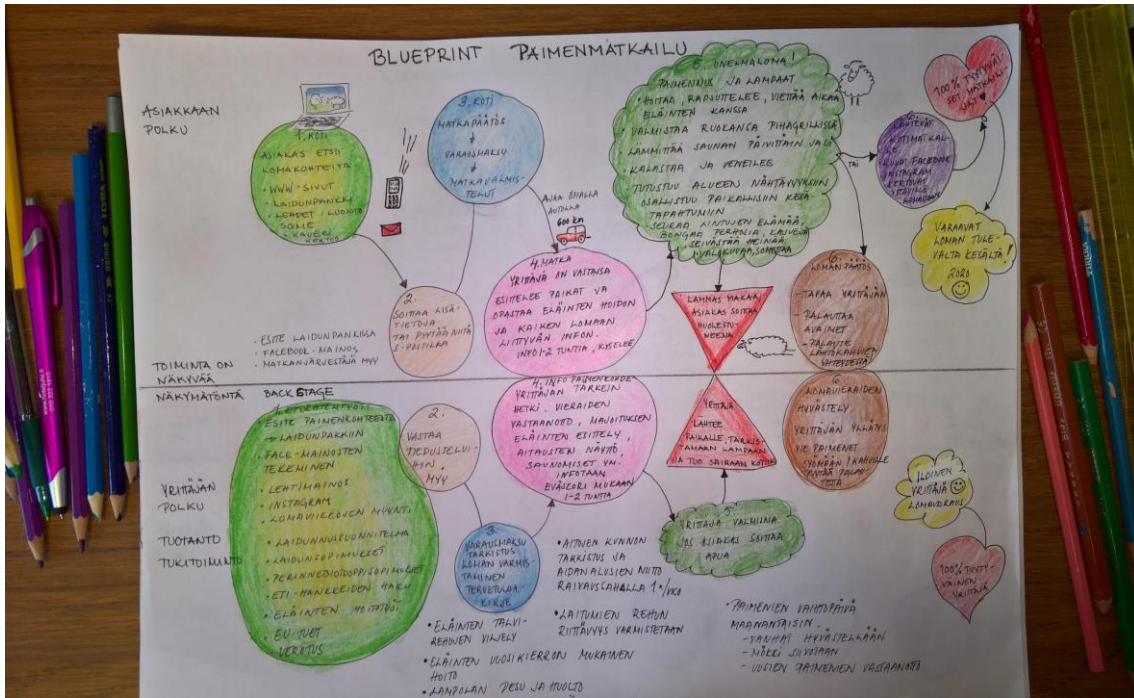 BLUEPRINT PAIMENMATKAILU
ASIAKKAAN
POLKU
1. KOTI
ASIAKAS ETSII
LOMAKOHTEITA
• WWW-SIVUT
• LAIDUNPANKKI
LEHDET / LUONTO
SOME
• KAVERI
KERTOO
2.
SOITTAA LISÄ-
TIETOJA
TAI PYYTÄÄ NIITÄ
S-POSTILLA
• ESITE LAIDUNPANKISSA
• FACEBOOK-MAINOS
• MATKANJÄRJESTÄJÄ MYY
3. KOTI
MATKAPÄÄTÖS
VARAUSMAKSU
MATKAVALMIS-
TELUT
AJAA OMALLA
AUTOLLA
600 KM
4. MATKA
YRITTÄJÄ ON VASTASSA
ESITTELEE PAIKAT JA
OPASTAA ELÄINTEN HOIDON
JA KAIKEN LOMAAN
LIITTYVÄN INFON
INFO 1-2 TUNTIA, KYSELEE
5. UNELMALOMA!
PAIMENNUS JA LAMPAAT
• HOITAA, RAPSUTTELEE, VIETTÄÄ AIKAA
ELÄINTEN KANSSA
• VALMISTAA RUOKANSA PIHAGRILLISSÄ
LÄMMITTÄÄ SAUNAN PÄIVITTÄIN JA UI
• KALASTAA JA VENEILEE
• TUTUSTUU ALUEEN NÄHTÄVYYKSIIN
OSALLISTUU PAIKALLISIIN KESÄ-
TAPAHTUMIIN
SEURAA LINTUJEN ELÄMÄÄ,
BONGAA PERHOSIA, KASVEJA
SEIVÄSTÄÄ HEINÄÄ
• VALOKUVAA, SOMETTAA
TAI
LAMMAS MAKAA,
ASIAKAS SOITTAA
HUOLESTU-
NEENA
6.
LÄHTEVÄT
KOTIMATKAL-
LE
• KUVAT FACEBOOK
INSTAGRAM
KERTOVAT
100% TYYTYVÄI-
SET MATKAILI-
JAT
VARAAVAT
LOMAN TULE-
VALTA KESÄLTÄ!
2020
6.
LOMAN PÄÄTÖS
- TAPAA YRITTÄJÄN
- PALAUTTAA
AVAIMET
- PALAUTE
LÄHTÖKAHVIEN
YHTEYDESSÄ
TOIMINTA ON
NÄKYVÄÄ
NÄKYMÄTÖNTÄ
BACK STAGE
YRITTÄJÄN
POLKU
TUOTANTO
TUKITOIMINTO
• ESITE PAIMENKOHTEESTA
→ LAIDUNPANKKIIN
• FACE-MAINOSTEN
TEKEMINEN
• LEHTIMAINOS
• INSTAGRAM
• LOMAVIIKKOJEN MYYNTI
• LAIDUNNUSSUUNNITELMA
• LAIDUNSOPIMUKSET
• PERINNEBIOTOOPPISOPIMUKSET
• ETI-HANKKEIDEN HAKU
• ELÄINTEN HOITOTYÖT
• EU-TUET
• VEROTUS
2.
VASTAA
TIEDUSTELUI-
HIN,
MYY
3.
VARAUSMAKSU
TARKISTUS
LOMAN VARMIS-
TAMINEN
TERVETULOA-
KIRJE
4. INFO PAIMENKOHDE
YRITTÄJÄN TÄRKEIN
HETKI. VIERAIDEN
VASTAANOTTO, MAJOITUKSEN
ELÄINTEN ESITTELY,
AITAUSTEN NÄYTTÖ,
SAUNOMISET YM.
INFOTAAN
EVÄSKORI MUKAAN
1-2 TUNTIA
YRITTÄJÄ
LÄHTEE
PAIKALLE, TARKIS-
TAMAAN LAMPAAN
JA TUO SAIRAAN KOTIIN
5.
YRITTÄJÄ VALMIINA
JOS ASIAKAS SOITTAA
APUA
6.
LOMAVIERAIDEN
HYVÄSTELY
YRITTÄJÄN YLLÄTYS
VIE PAIMENET
SYÖMÄÄN / KAHVILLE
PYYTÄÄ PALAU-
TETTA
ILOINEN
YRITTÄJÄ
LOMAVARAUS
100% TYYTY-
VÄINEN
YRITTÄJÄ
• AITOJEN KUNNON
TARKISTUS JA
AIDANALUSIEN NIITTO
RAIVAUSSAHALLA 1 X/VKO
• LAITUMIEN REHUN
RIITTÄVYYS VARMISTETAAN
• ELÄINTEN TALVI-
REHUJEN VILJELY
• ELÄINTEN VUOSIKIERRON MUKAINEN
HOITO
• LAMPOLAN PESU JA HUOLTO
• PAIMENIEN VAIHTOPÄIVÄ
MAANANTAISIN
- VANHAT HYVÄSTELLÄÄN
- MÖKKI SIIVOTAAN
- UUSIEN PAIMENIEN VASTAANOTTO